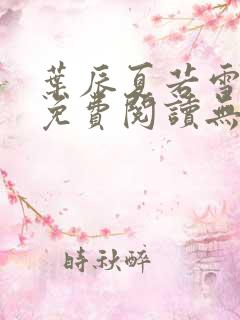 葉辰夏若雪
免費閱讀無
時秋醉